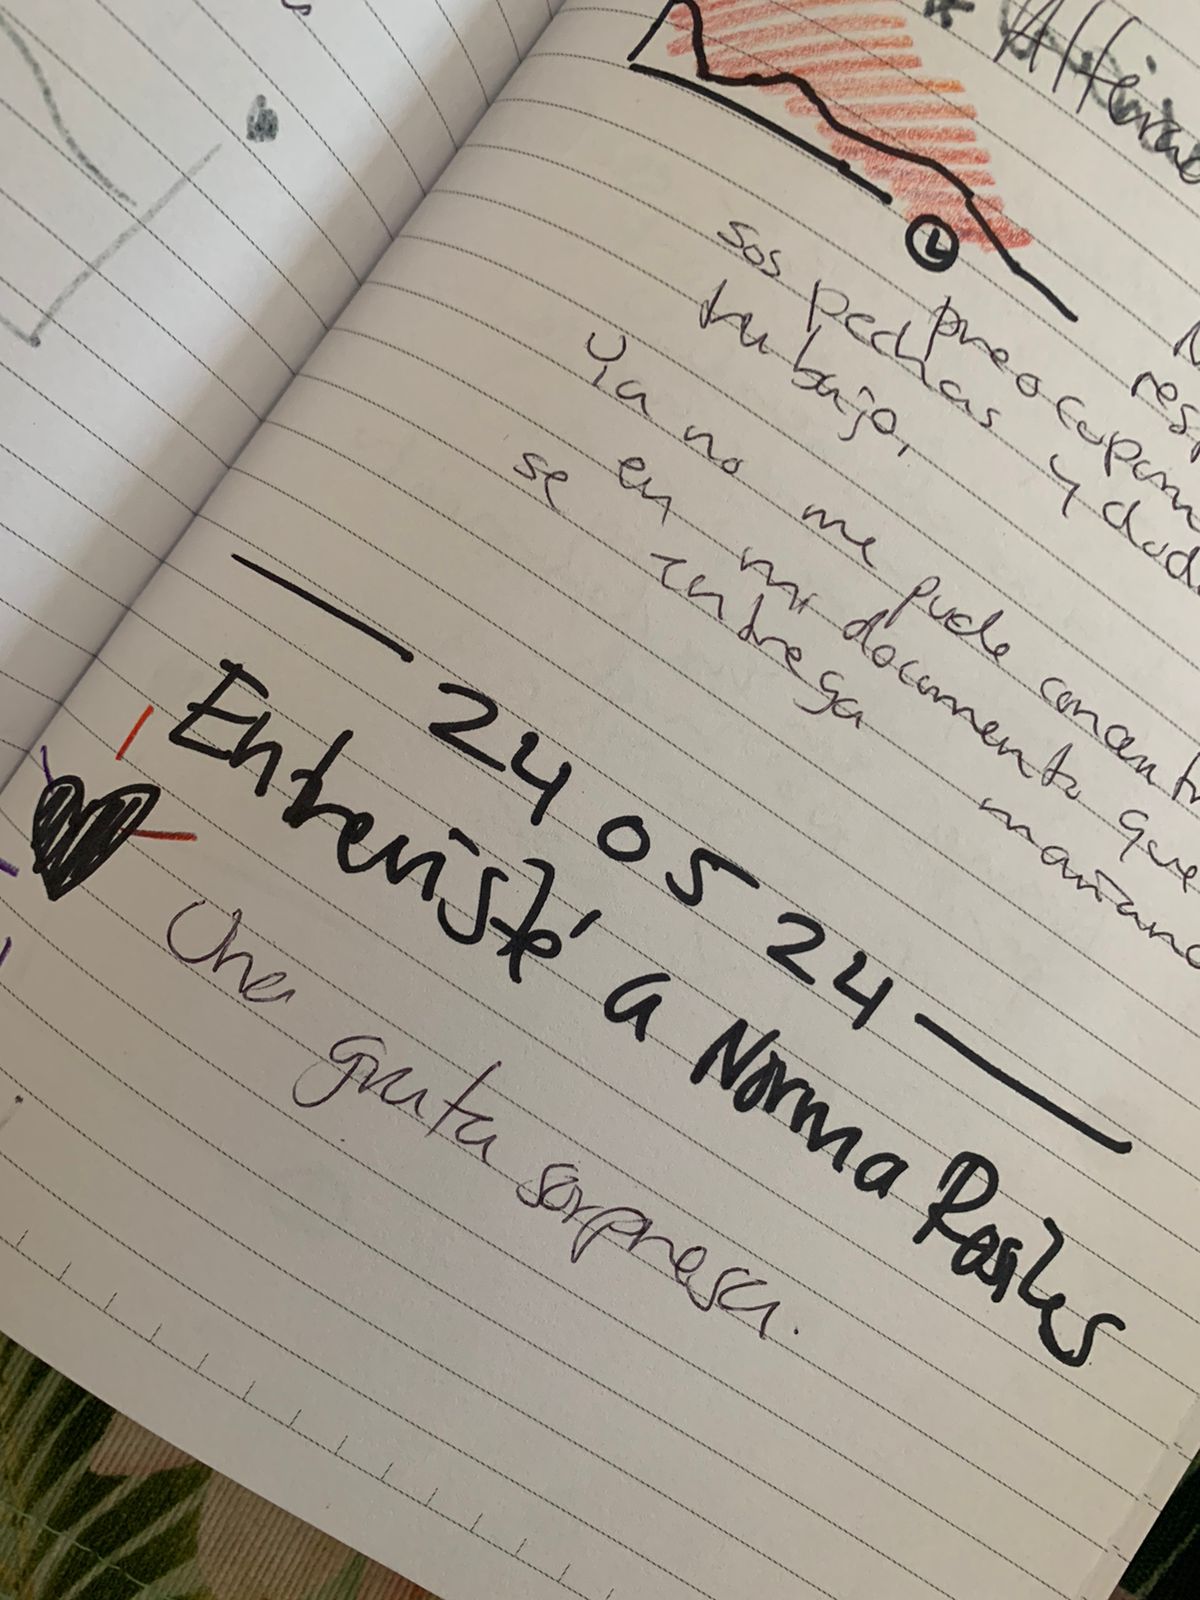 L
preocupan
sospechas y dud
trabajo,
ya no me pude concentr
en mi documento que
se entrega mañana
24 05 24
Entrevisté a Norma
Una grata sorpresa.